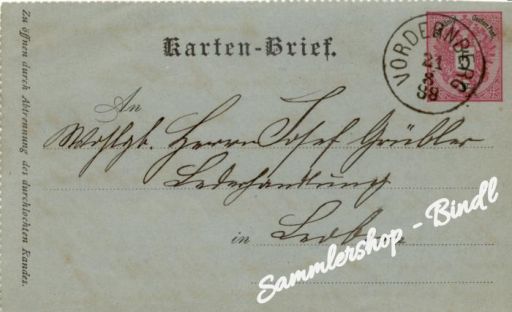 Karten-Brief.
VORDERNBERG
21
8
88
An
Wohlgb. Herrn Josef Grübler
Lederhandlung
in Leoben
Zu öffnen durch Abtrennung des durchlochten Randes.
Sammlershop - Bindl